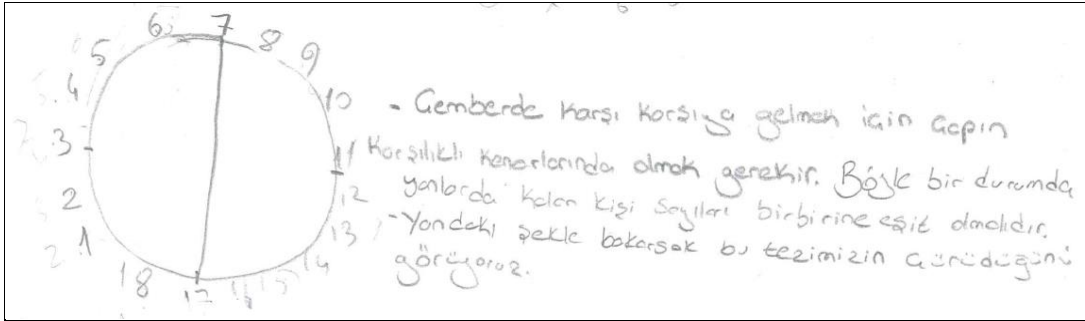 6 7 8
5 9
4 10
3 11
2 12
1 13
18 17 16 15 14
- Çemberde karşı karşıya gelmek için çapın
karşılıklı kenarlarında olmak gerekir. Böyle bir durumda
yanlarda kalan kişi sayıları birbirine eşit olmalıdır.
- Yandaki şekle bakarsak bu tezimizin çürüdüğünü
görüyoruz.